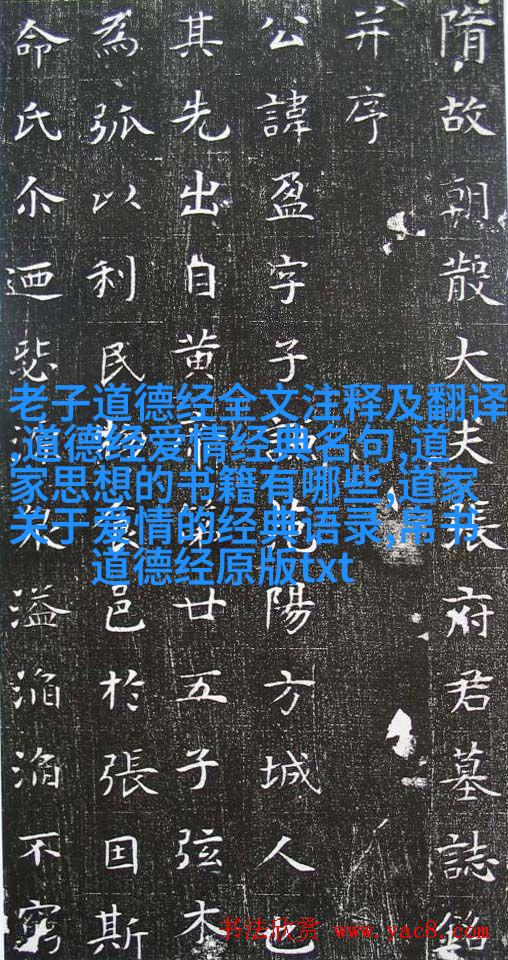 隋故朝散大夫張府君墓誌銘
并序
公諱盈字子范陽方城人也
其先出自黃帝第廿五子弦木
為弧以利民邑於張因斯
命氏尒迺溢滔滔不窮
老子道德经全文注释及翻译
,道德经爱情经典名句,道
家思想的书籍有哪些,道家
关于爱情的经典语录,帛书
道德经原版txt
书法欣赏 www.yac8.com